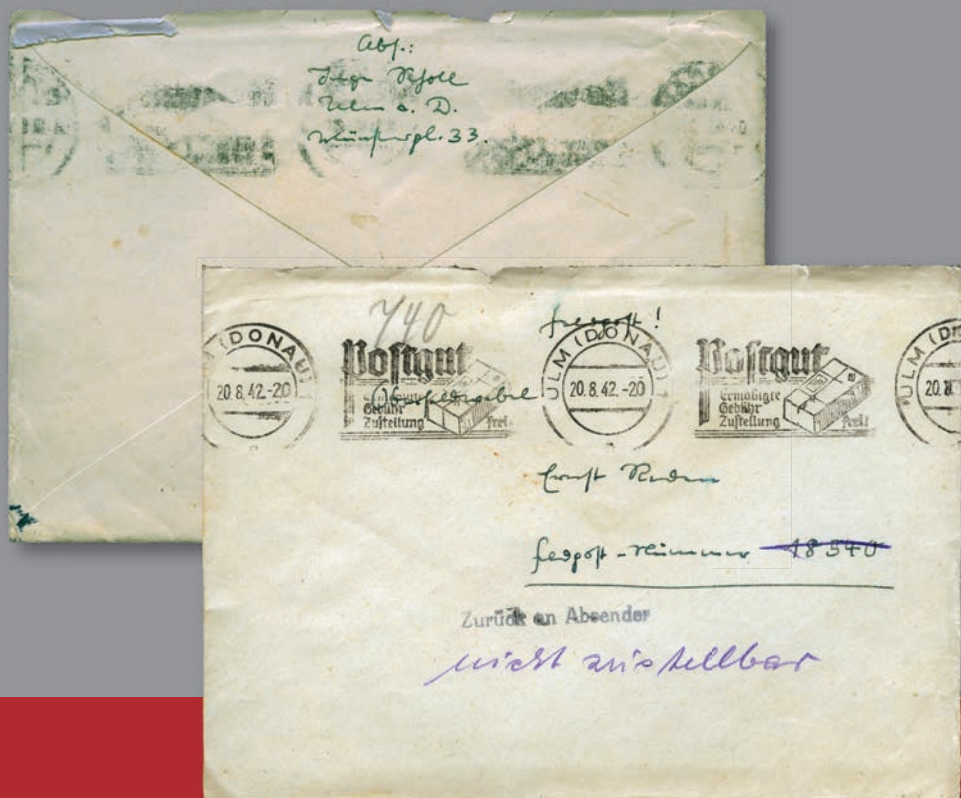 Abs.:
Inge Scholl
Ulm a. D.
Münsterpl. 33.
740
Feldpost!
ULM (DONAU) 1
20.8.42.-20
Postgut
Gebühr
Zustellung frei
ULM (DONAU) 1
20.8.42.-20
Postgut
ermäßigte
Gebühr
Zustellung frei
ULM (D
20.8
Ernst Reden
Feldpost-Nummer 18540
Zurück an Absender
nicht zustellbar